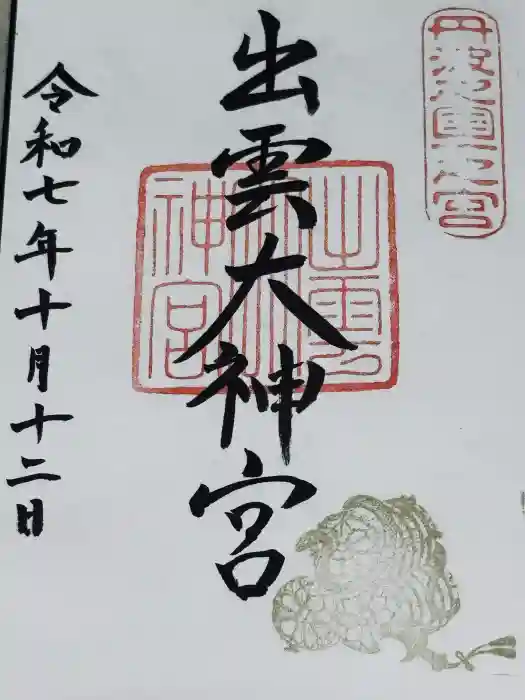 丹波國一之宮
出雲大神宮
出雲大神宮
令和七年十月十二日